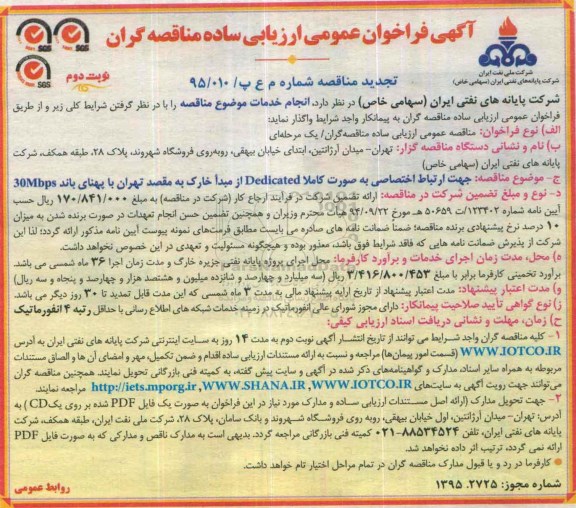 آگهی فراخوان عمومی ارزیابی ساده مناقصه گران
شرکت ملی نفت ایران
شرکت پایانه‌های نفتی ایران (سهامی خاص)
نوبت دوم
SGS
SGS
SGS
تجدید مناقصه شماره م ع پ/ ۹۵/۰۱۰
شرکت پایانه های نفتی ایران (سهامی خاص) در نظر دارد، انجام خدمات موضوع مناقصه را با در نظر گرفتن شرایط کلی زیر و از طریق
فراخوان عمومی ارزیابی ساده مناقصه گران به پیمانکار واجد شرایط واگذار نماید:
الف) نوع فراخوان: مناقصه عمومی ارزیابی ساده مناقصه‌گران/ یک مرحله‌ای
ب) نام و نشانی دستگاه مناقصه گزار: تهران- میدان آرژانتین، ابتدای خیابان بیهقی، روبه‌روی فروشگاه شهروند، پلاک ۲۸، طبقه همکف، شرکت
پایانه های نفتی ایران (سهامی خاص)
ج- موضوع مناقصه: جهت ارتباط اختصاصی به صورت کاملا Dedicated از مبدأ خارک به مقصد تهران با پهنای باند 30Mbps
د- نوع و مبلغ تضمین شرکت در مناقصه: ارائه تضمین شرکت در فرآیند ارجاع کار (شرکت در مناقصه) به مبلغ ۱۷۰/۸۴۱/۰۰۰ ریال حسب
آیین نامه شماره ۱۲۳۴۰۲/ت ۵۰۶۵۹ هـ مورخ ۹۴/۰۹/۲۲ هیأت محترم وزیران و همچنین تضمین حسن انجام تعهدات در صورت برنده شدن به میزان
۱۰ درصد نرخ پیشنهادی برنده مناقصه؛ ضمناً ضمانت نامه های صادره می بایست مطابق فرمت‌های نمونه پیوست آیین نامه مذکور ارائه گردد؛ لذا این
شرکت از پذیرش ضمانت نامه هایی که فاقد شرایط فوق باشد، معذور بوده و هیچگونه مسئولیت و تعهدی در این خصوص نخواهد داشت.
ه) محل، مدت زمان اجرای خدمات و برآورد کارفرما: محل اجرای پروژه پایانه نفتی جزیره خارک و مدت زمان اجرا ۳۶ ماه شمسی می باشد.
برآورد تخمینی کارفرما برابر با مبلغ ۳/۴۱۶/۸۰۰/۴۵۳ ریال (سه میلیارد و چهارصد و شانزده میلیون و هشتصد هزار و چهارصد و پنجاه و سه ریال)
و) مدت اعتبار پیشنهاد: مدت اعتبار پیشنهاد از تاریخ ارایه پیشنهاد مالی به مدت ۳ ماه شمسی که این مدت قابل تمدید تا ۳۰ روز دیگر می باشد.
ز) نوع گواهی تأیید صلاحیت پیمانکار: دارای مجوز شورای عالی انفورماتیک در زمینه خدمات شبکه های اطلاع رسانی با حداقل رتبه ۴ انفورماتیک
ح) زمان، مهلت و نشانی دریافت اسناد ارزیابی کیفی:
۱- کلیه مناقصه گران واجد شرایط می توانند از تاریخ انتشار آگهی نوبت دوم به مدت ۱۴ روز به سایت اینترنتی شرکت پایانه های نفتی ایران به آدرس
WWW.IOTCO.IR (قسمت امور پیمان‌ها) مراجعه و نسبت به ارائه مستندات ارزیابی ساده اقدام و ضمن تکمیل، مهر و امضای آن ها و الصاق مستندات
مربوطه به همراه سایر اسناد مدارک و گواهینامه‌های ذکر شده در آگهی و سایت پیش گفته، به کمیته فنی بازرگانی تحویل نمایند. همچنین مناقصه گران
می‌توانند جهت رویت آگهی به سایت‌های WWW.IOTCO.IR ,WWW.SHANA.IR ,http://iets.mporg.ir مراجعه نمایند.
۲- جهت تحویل مدارک (ارائه اصل مستندات ارزیابی ساده و مدارک مورد نیاز در این فراخوان به صورت یک فایل PDF شده بر روی یک CD) به
آدرس: تهران- میدان آرژانتین، اول خیابان بیهقی، روبه روی فروشگاه شهروند و بانک سامان، پلاک ۲۸، شرکت ملی نفت ایران، طبقه همکف، شرکت
پایانه های نفتی ایران، تلفن ۸۸۵۳۴۵۲۴-۰۲۱ کمیته فنی بازرگانی مراجعه گردد. بدیهی است به مدارک ناقص و مدارکی که به صورت فایل PDF
ارائه نمی گردد، ترتیب اثر داده نخواهد شد.
● کارفرما در رد و یا قبول مدارک مناقصه گران در تمام مراحل اختیار تام خواهد داشت.
شماره مجوز: ۲۷۲۵. ۱۳۹۵
روابط عمومی